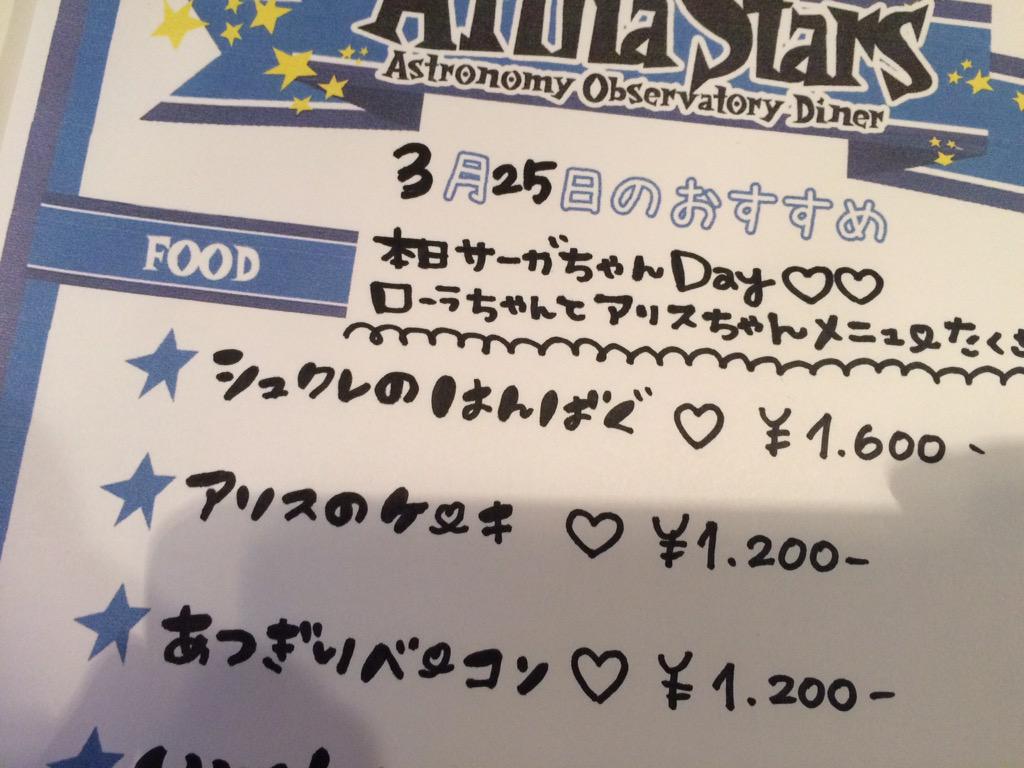 Stars
Astronomy Observatory Diner
3月25日のおすすめ
FOOD
本日サーガちゃんDay♡♡
ローラちゃんとアリスちゃんメニューたくさ
シュクレのはんばぐ ♡ ¥1.600-
アリスのケーキ ♡ ¥1.200-
あつぎりベーコン♡ ¥1.200-